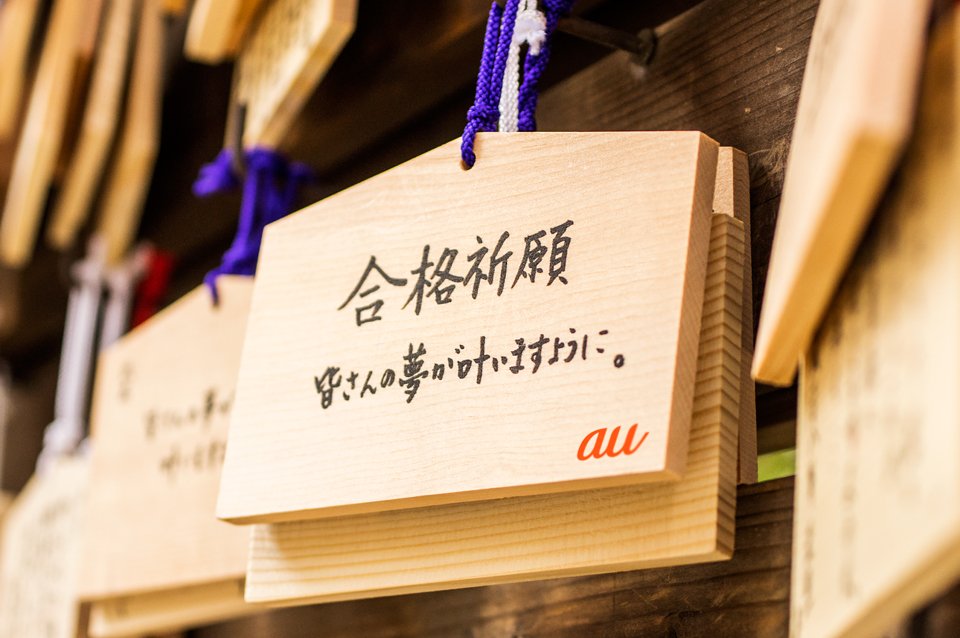 合格祈願
皆さんの夢が叶いますように。
au